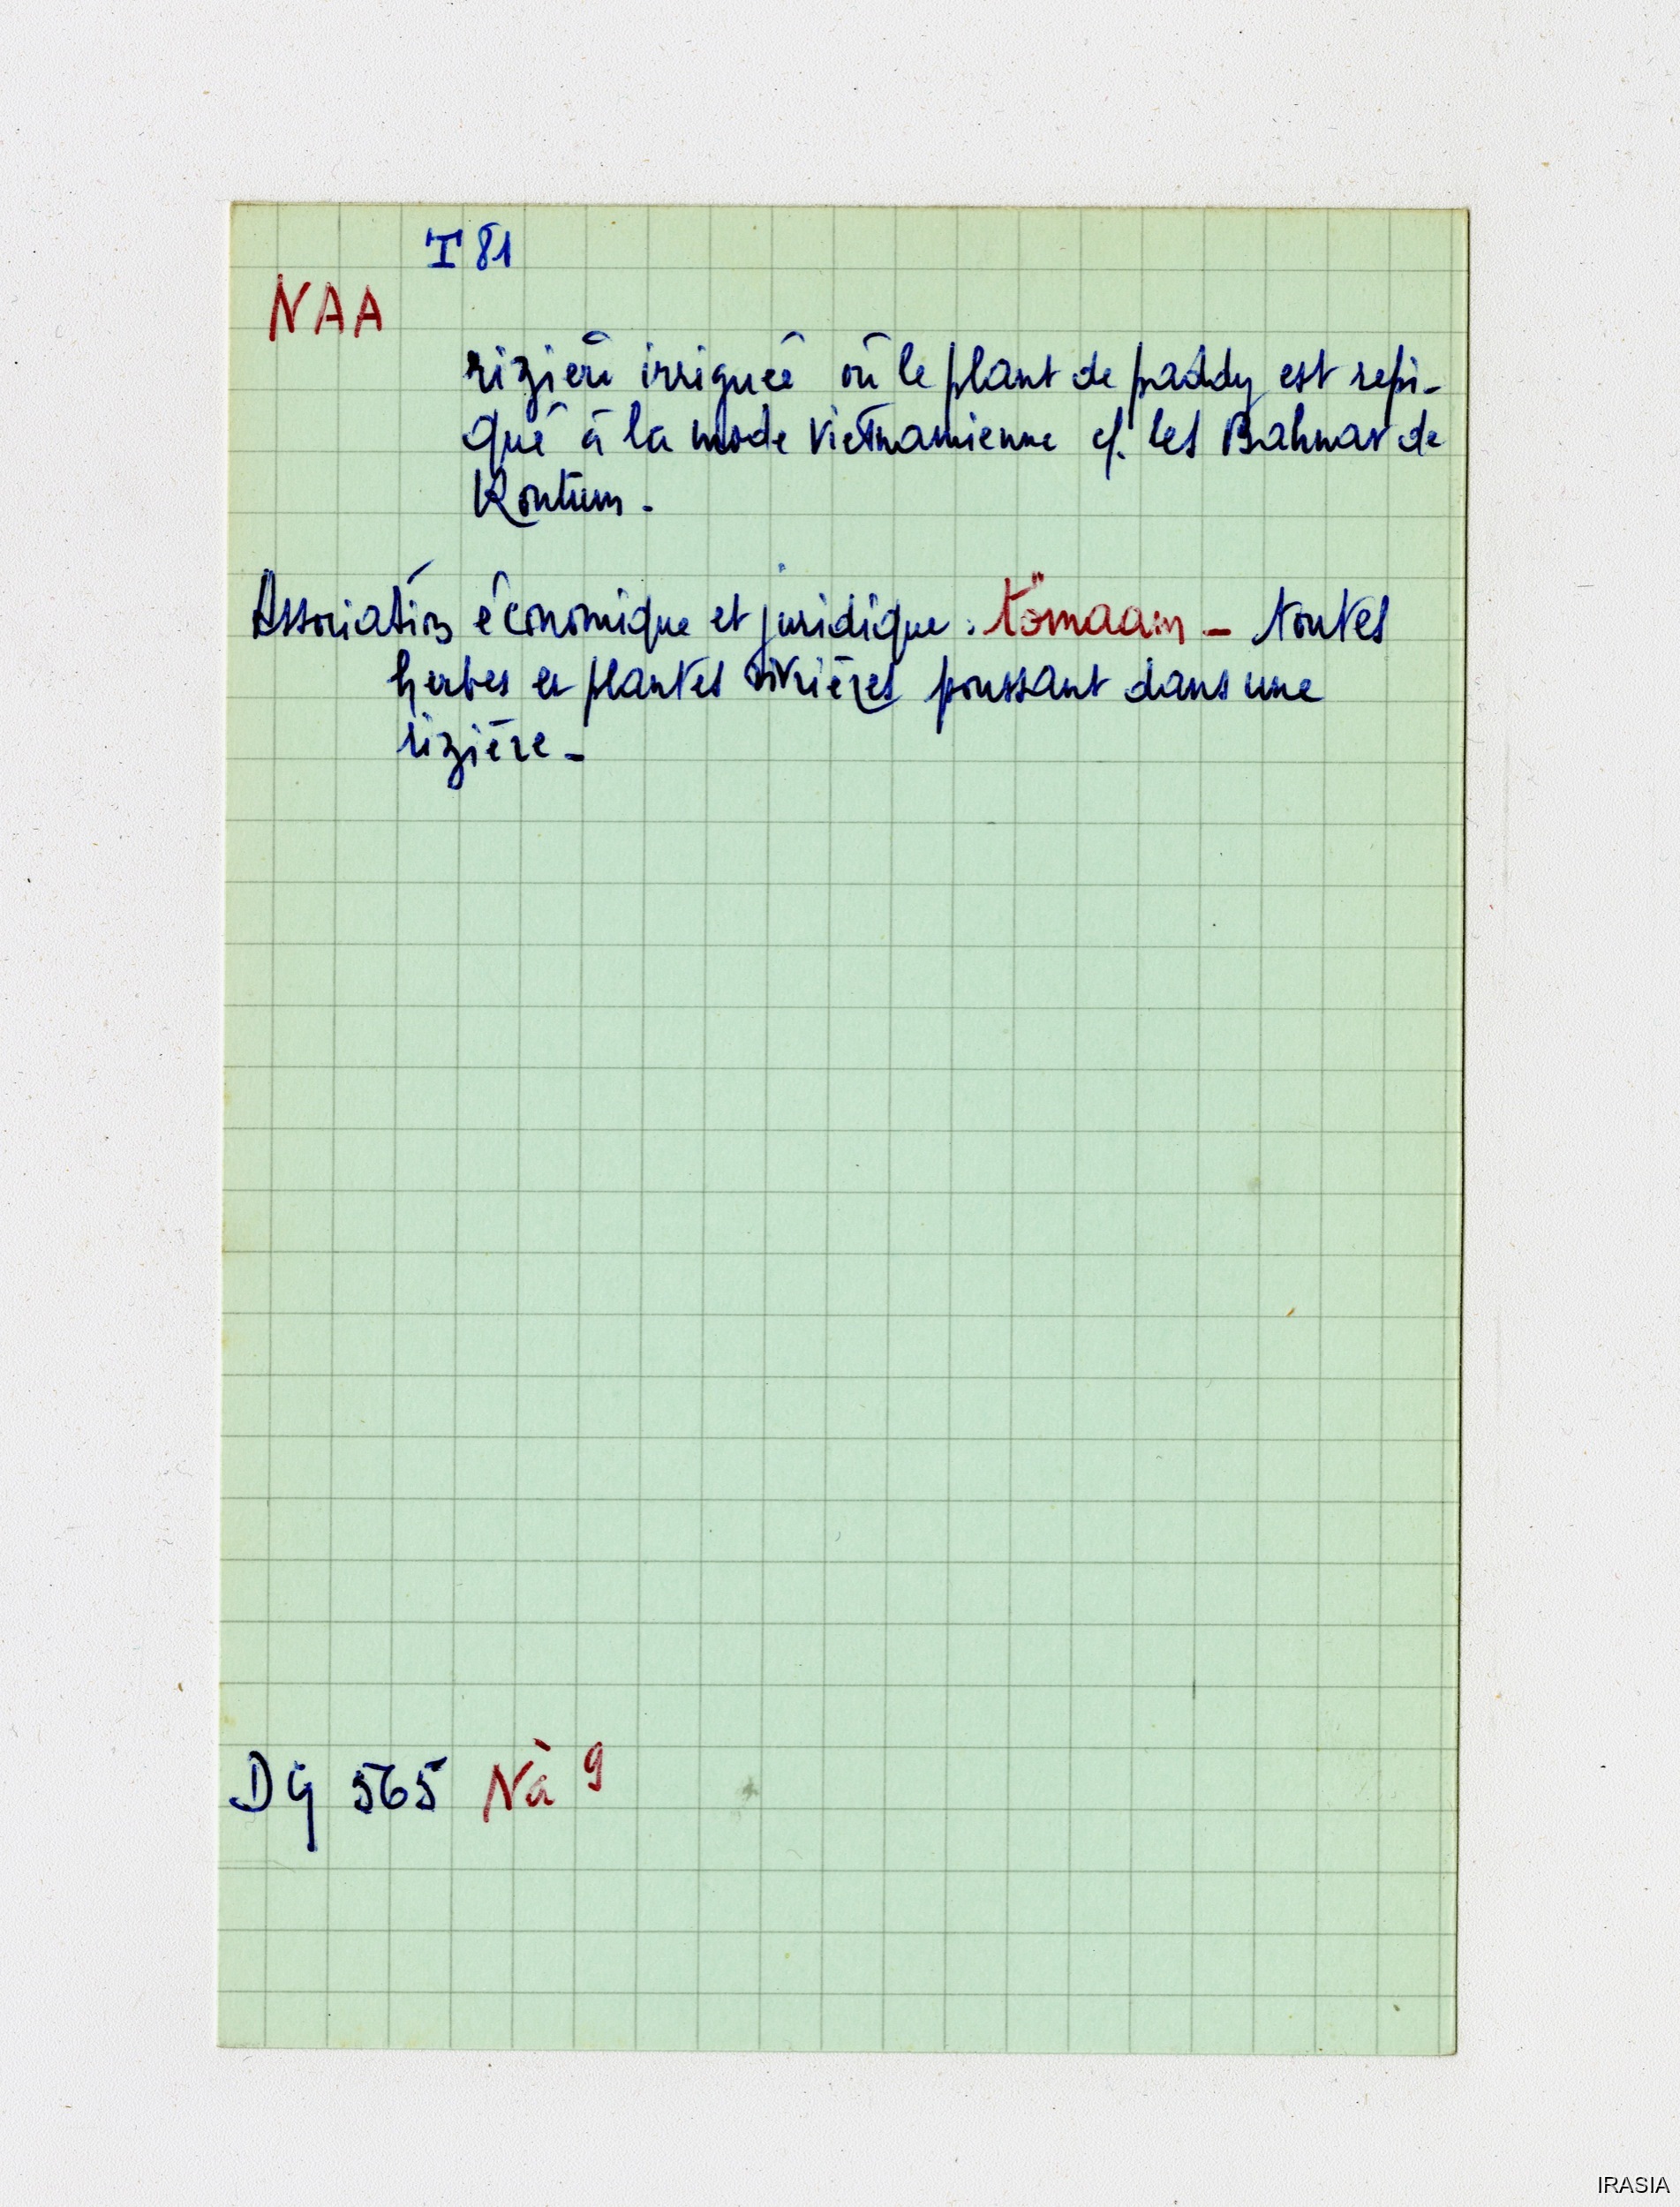 I 81
NAA
rizière irriguée où le plant de paddy est repi-
qué à la mode vietnamienne cf. les Bahnar de
Kontum.
Association économique et juridique : tömaam - toutes
herbes et plantes vivrières poussant dans une
rizière -
DG 565 Nà 9
IRASIA